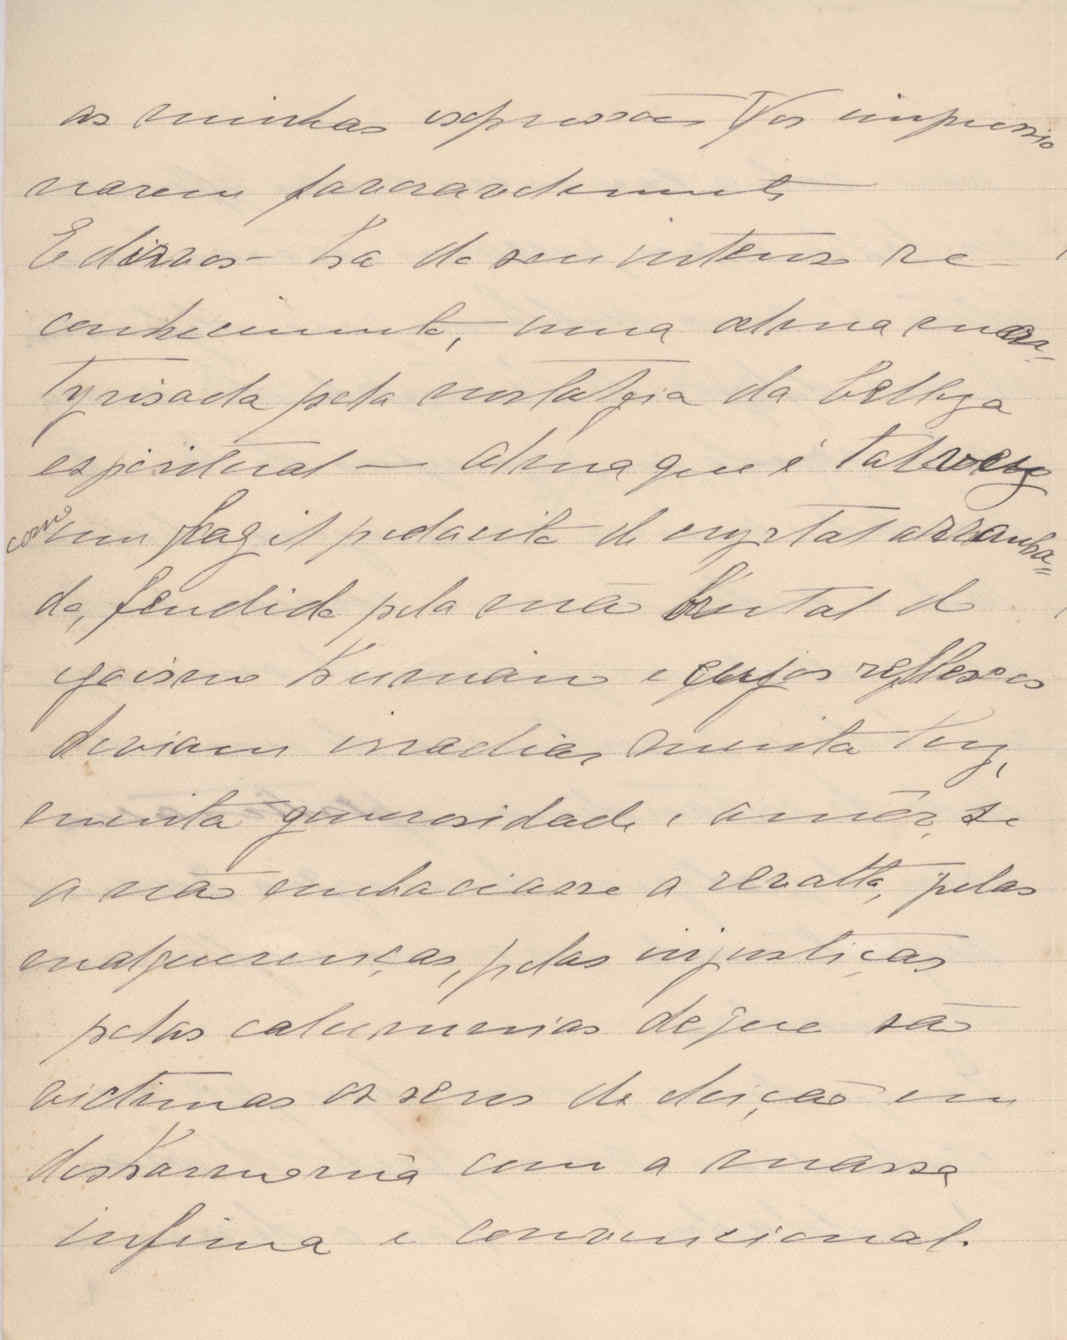 as minhas expressões Vos impressio
narem favoravelmente
E dizvos-ha do seu intenso re-
conhecimento, uma alma mar-
tyrisada pela nostalgia da belleza
espiritual — alma que é talvez
como um fragil pedacito de crystal arranha-
do, fendido pela mão brutal do
egoismo humano e cujos reflexos
deviam irradiar muita luz,
muita generosidade e amôr, se
a não embaciasse a revolta, pelas
malquerenças, pelas injustiças
pelas calumnias de que são
victimas os seres de eleição em
desharmonia com a massa
infima e convencional.